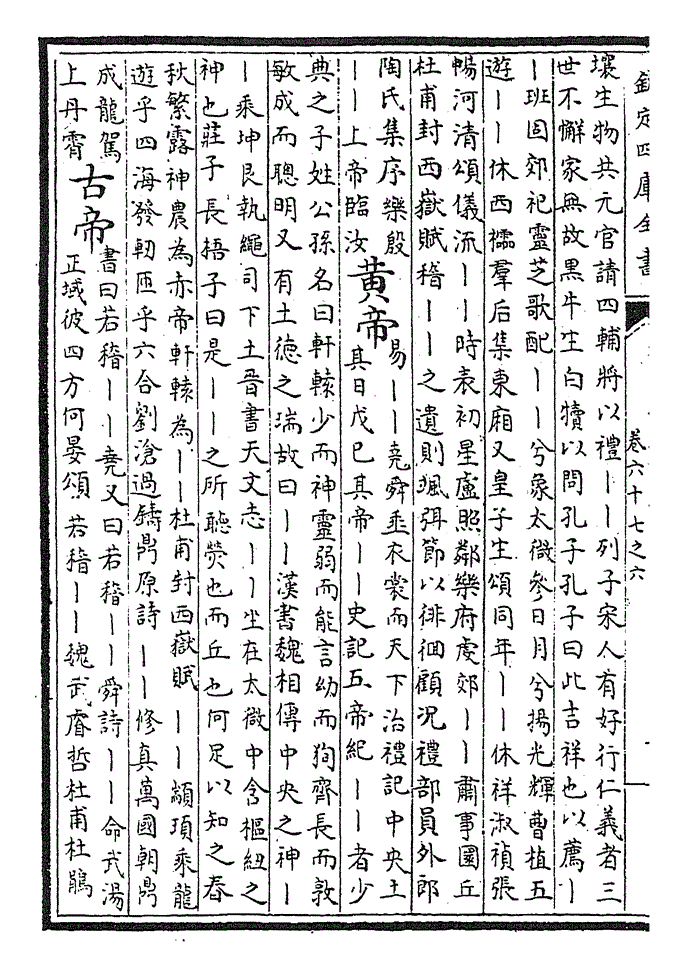 欽定四庫全書
卷六十七之六
壤生物共元官請四輔將以禮丨丨列子宋人有好行仁義者三
世不懈家無故黑牛生白犢以問孔子孔子曰此吉祥也以薦丨
丨班固郊祀靈芝歌配丨丨兮象太微參日月兮揚光輝曹植五
遊丨丨休西櫺羣后集東廂又皇子生頌同年丨丨休祥淑禎張
暢河清頌儀流丨丨時表初星盧照鄰樂府虔郊丨丨肅事圜丘
杜甫封西嶽賦稽丨丨之遺則颯弭節以徘徊顧况禮部員外郎
陶氏集序樂殷
丨丨上帝臨汝
黃帝
易丨丨堯舜垂衣裳而天下治禮記中央土
其日戊己其帝丨丨史記五帝紀丨丨者少
典之子姓公孫名曰軒轅少而神靈弱而能言幼而徇齊長而敦
敏成而聰明又有土德之瑞故曰丨丨漢書魏相傳中央之神丨
丨乘坤艮執繩司下土晋書天文志丨丨坐在太微中含樞紐之
神也莊子長梧子曰是丨丨之所聽熒也而丘也何足以知之春
秋繁露神農為赤帝軒轅為丨丨杜甫封西嶽賦丨丨顓頊乘龍
遊乎四海發軔匝乎六合劉滄過鑄鼎原詩丨丨修真萬國朝鼎
成龍駕
上丹霄
古帝
書曰若稽丨丨堯又曰若稽丨丨舜詩丨丨命武湯
正域彼四方何晏頌若稽丨丨魏武睿哲杜甫杜鵑